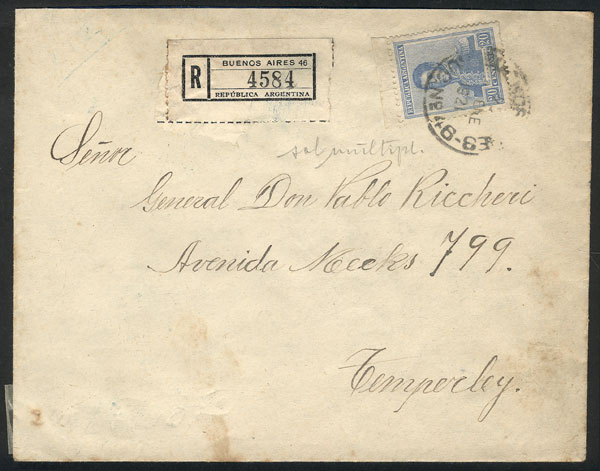 BUENOS AIRES 46
R 4584
REPÚBLICA ARGENTINA
REPUBLICA ARGENTINA
20 20
sol múltipl.
Señor
General Don Pablo Riccheri
Avenida Meeks 799.
Temperley.